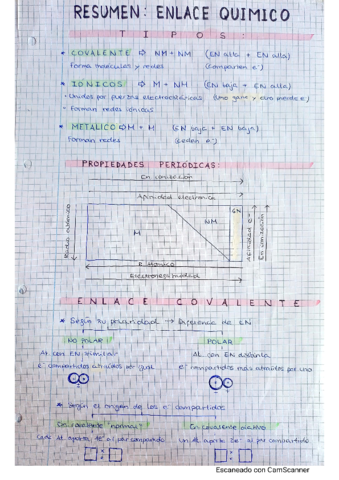 RESUMEN: ENLACE QUIMICO
TIPOS:
* COVALENTE ⇨ NM + NM (EN alta + EN alta)
Forma moléculas y redes (Comparten e⁻)
* IÓNICOS ⇨ M + NH (EN baja + EN alta)
- Unidos por fuerzas electrostáticas (Uno gana y otro pierde e⁻)
- Forman redes iónicas
* METALICO ⇨ M + M (EN baja + EN baja)
Forman redes (Ceden e⁻)
PROPIEDADES PERIÓDICAS:
En ionización
Afinidad electrónica
GN
NM
M
Radio atómico
Afinidad e⁻
En ionización
R atómico
Electronegatividad
ENLACE COVALENTE
* Según su polaridad → Diferencia de EN
NO POLAR
POLAR
At con EN similar
At con EN distinta
e⁻ compartidos atraídos por igual
e⁻ compartidos más atraídos por uno
* Según el origen de los e⁻ compartidos
En covalente "normal"
En covalente dativo
Cada At aporta 1e⁻ al par compartido
Un At aporta 2e⁻ al par compartido
Escaneado con CamScanner